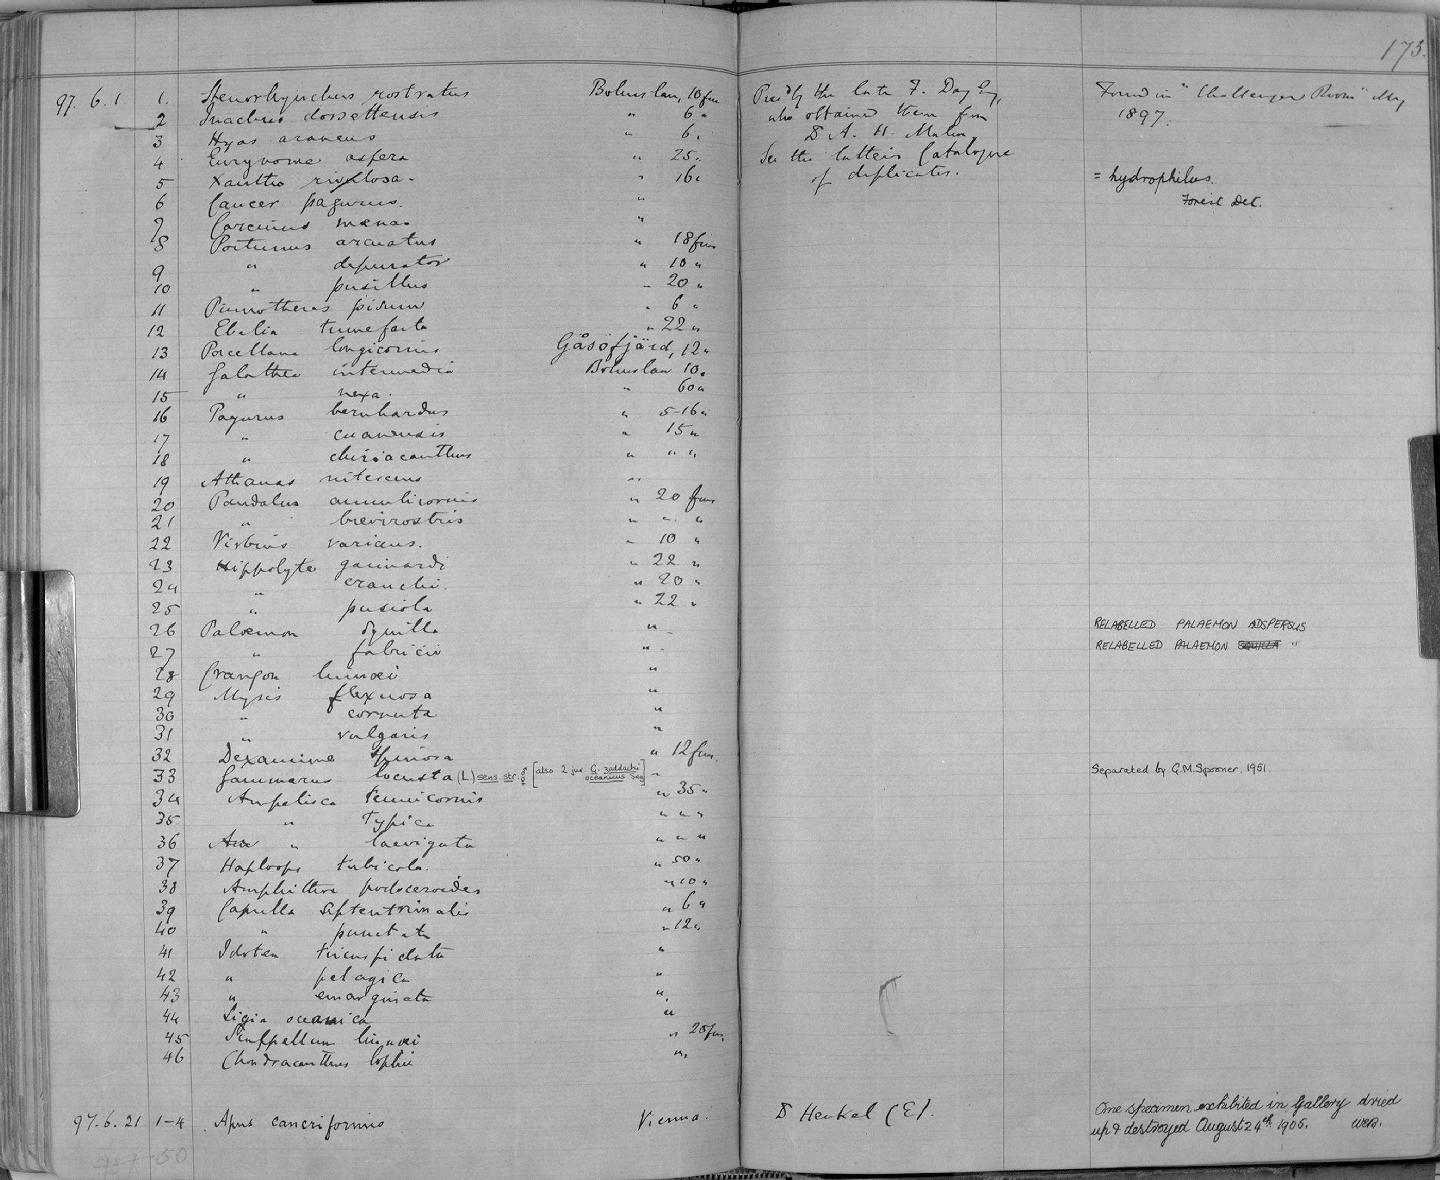 173.
97. 6. 1 1. Stenorhynchus rostratus Bohuslan, 10 fms Pres^d by the late F. Day Esq, Found in "Challenger Room" May
2 Inachus dorsettensis " 6 " who obtained them from 1897.
3 Hyas araneus " 6 " D^r A. H. Malm,
4 Eurynome aspera " 25 " See the latter's Catalogue
5 Xantho rivulosa - " 16 " of duplicates. = hydrophilus.
6 Cancer pagurus. " Forest Det.
7 Carcinus maenas "
8 Portunus arcuatus " 18 fms
9 " depurator " 10 "
10 " pusillus " 20 "
11 Pinnotheres pisum " 6 "
12 Ebalia tumefacta " 22 "
13 Porcellana longicornis Gåsöfjärd, 12 "
14 Galathea intermedia Bohuslan 10 "
15 " nexa. " 60 "
16 Pagurus bernhardus " 5-16 "
17 " cuanensis " 15 "
18 " chiroacanthus " " "
19 Athanas nitescens "
20 Pandalus annulicornis " 20 fms
21 " brevirostris " " "
22 Virbius varians. " 10 "
23 Hippolyte gaimardi " 22 "
24 " cranchi. " 20 "
25 " pusiola " 22 "
26 Palaemon squilla " RELABELLED PALAEMON ADSPERSUS
27 " fabricii " RELABELLED PALAEMON SQUILLA "
28 Crangon linnaei "
29 Mysis flexuosa "
30 " cornuta "
31 " vulgaris "
32 Dexamine spinosa " 12 fms.
33 Gammarus locusta (L) sens. str. ♂♀ [also 2 juv. G. zaddachi oceanicus Seg] " Separated by G.M. Spooner, 1951.
34 Ampelisca tenuicornis " 35 "
35 " typica " " "
36 " laevigata " " "
37 Haploops tubicola. " 50 "
38 Amphithoe podoceroides " 10 "
39 Caprella septentrionalis " 6 "
40 " punctata " 12 "
41 Idotea tricuspidata "
42 " pelagica "
43 " emarginata "
44 Ligia oceanica "
45 Scalpellum linnaei " 20 fms
46 Chondracanthus lophii "
97. 6. 21 1-4 Apus cancriformis Vienna. D^r Henkel (E). One specimen exhibited in Gallery dried
up & destroyed August 24th. 1905. WCB.
50